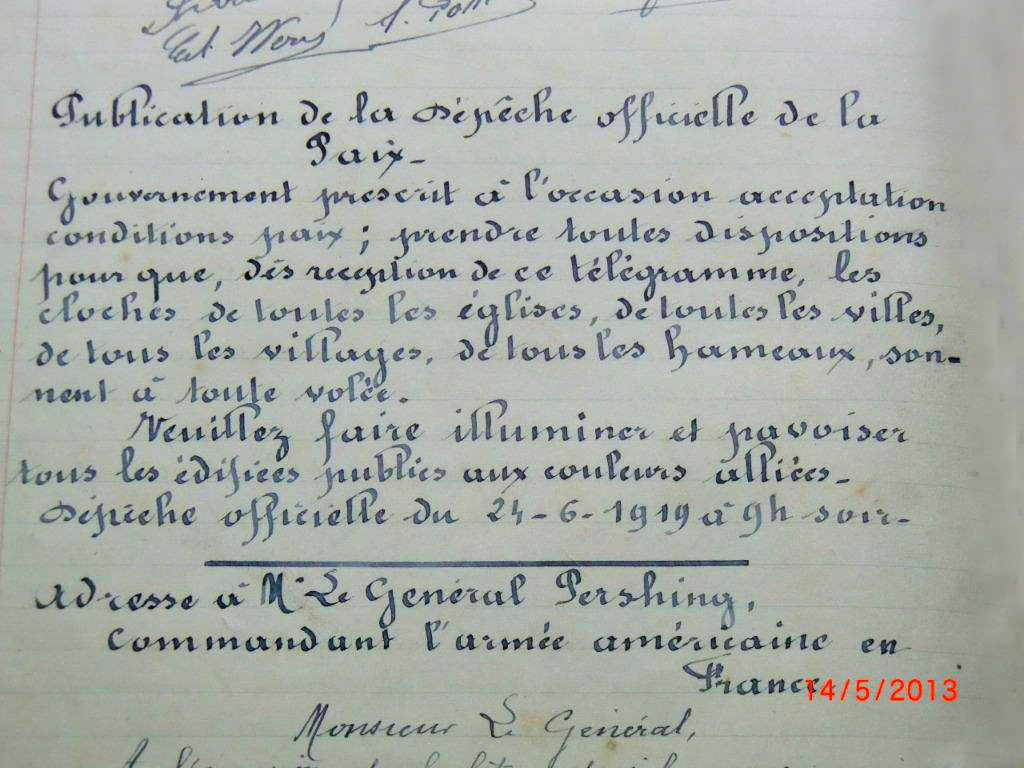 Publication de la Dépêche officielle de la
Paix-
Gouvernement prescrit à l'occasion acceptation
conditions paix ; prendre toutes dispositions
pour que, dès reception de ce télégramme, les
cloches de toutes les églises, de toutes les villes,
de tous les villages, de tous les hameaux, son-
nent à toute volée.
Veuillez faire illuminer et pavoiser
tous les édifices publics aux couleurs alliées-
Dépêche officielle du 24-6-1919 à 9h soir-
Adresse à Mr Le Général Pershing,
Commandant l'armée américaine en
France
14/5/2013
Monsieur Le Général,